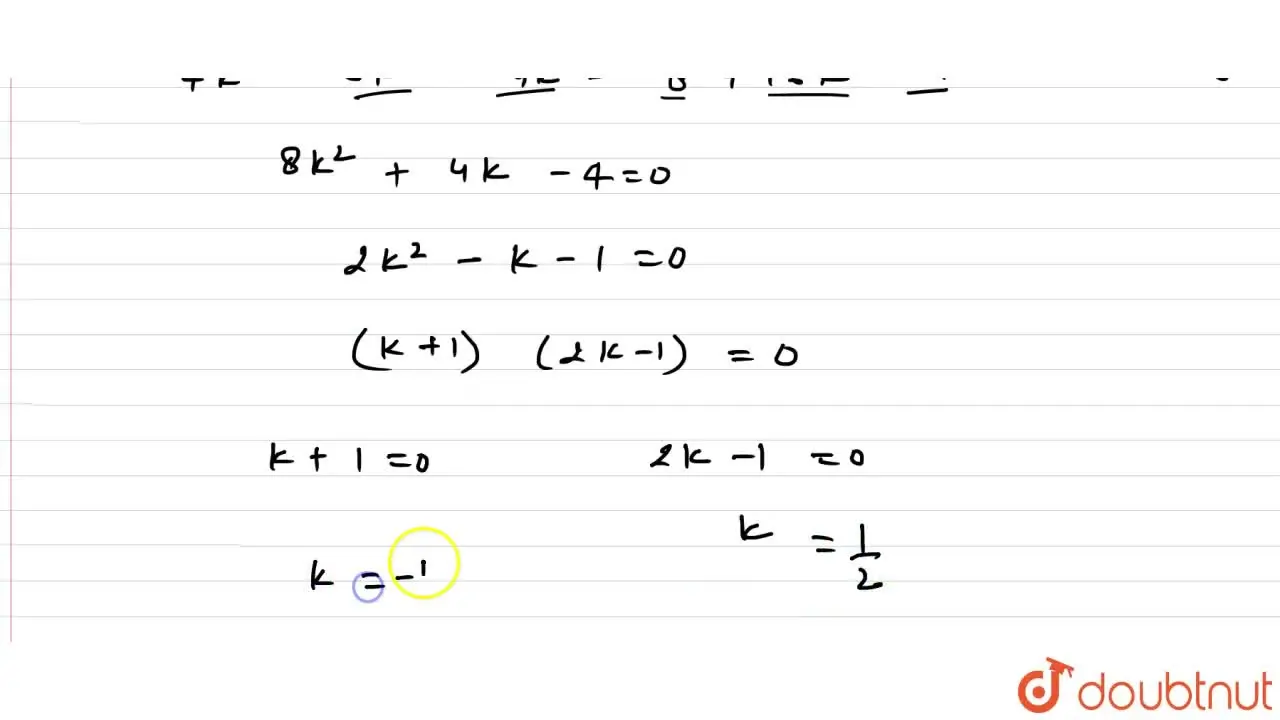 8k² + 4k - 4 = 0
2k² - k - 1 = 0
(k + 1) (2k - 1) = 0
k + 1 = 0 2k - 1 = 0
k = -1 k = 1/2
doubtnut